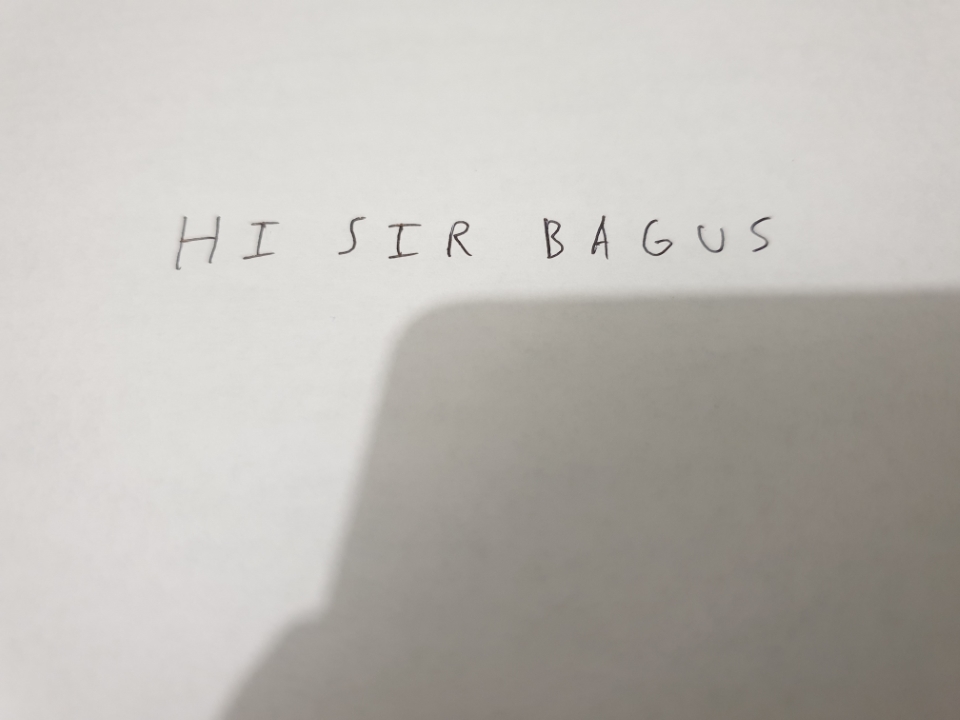 HI SIR BAGUS